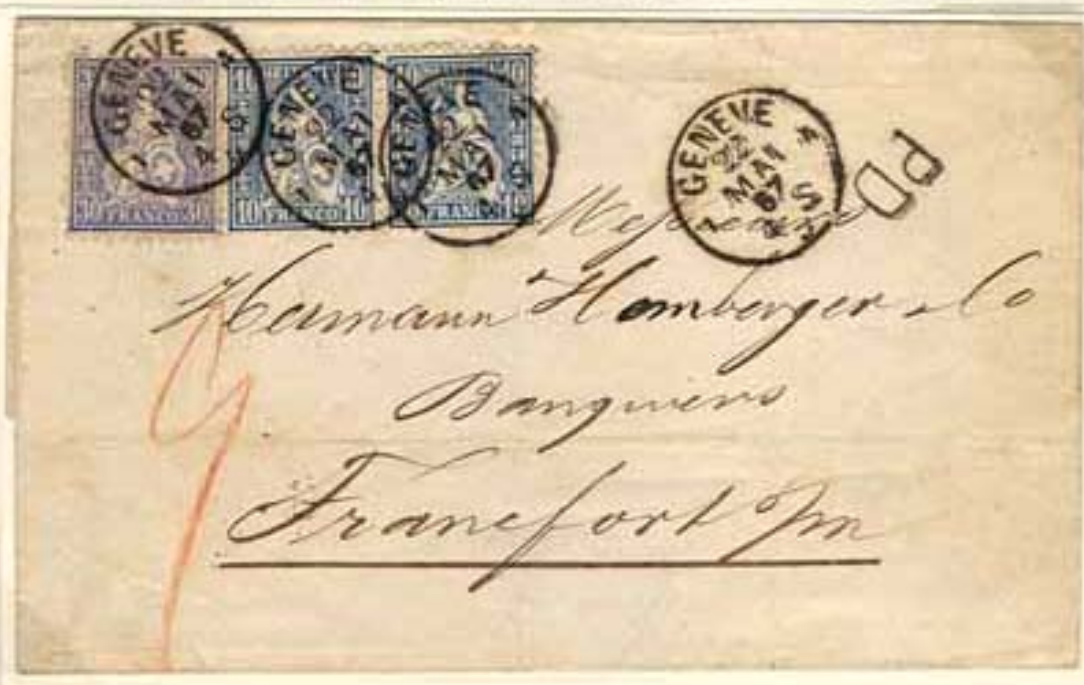 GENEVE
22
MAI
67
S
GENEVE
MAI
67
GENEVE
MAI
67
GENEVE
22
MAI
67
S
PD
FRANCO
10 FRANCO 10
FRANCO
Messieurs
Hermann Homberger & Co
Banquiers
Francfort s/m